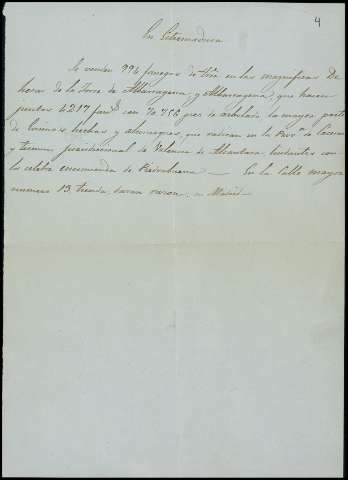 4
En Estremadura
Se venden 994 fanegas de trra en las magnificas De
hesas de la Torre de Albarragena, y Albarragena, que hacen
juntas 4217 fans con 70.756 pies de arbolado la mayor parte
de encinas hechas y alcornoques, que radican en la Prova de Caceres
y termino jurisdiccional de Valencia de Alcantara lindantes con
la celebre encomienda de Piedrabuena — En la Calle mayor
numero 13, tienda, daran razon, en Madrid —